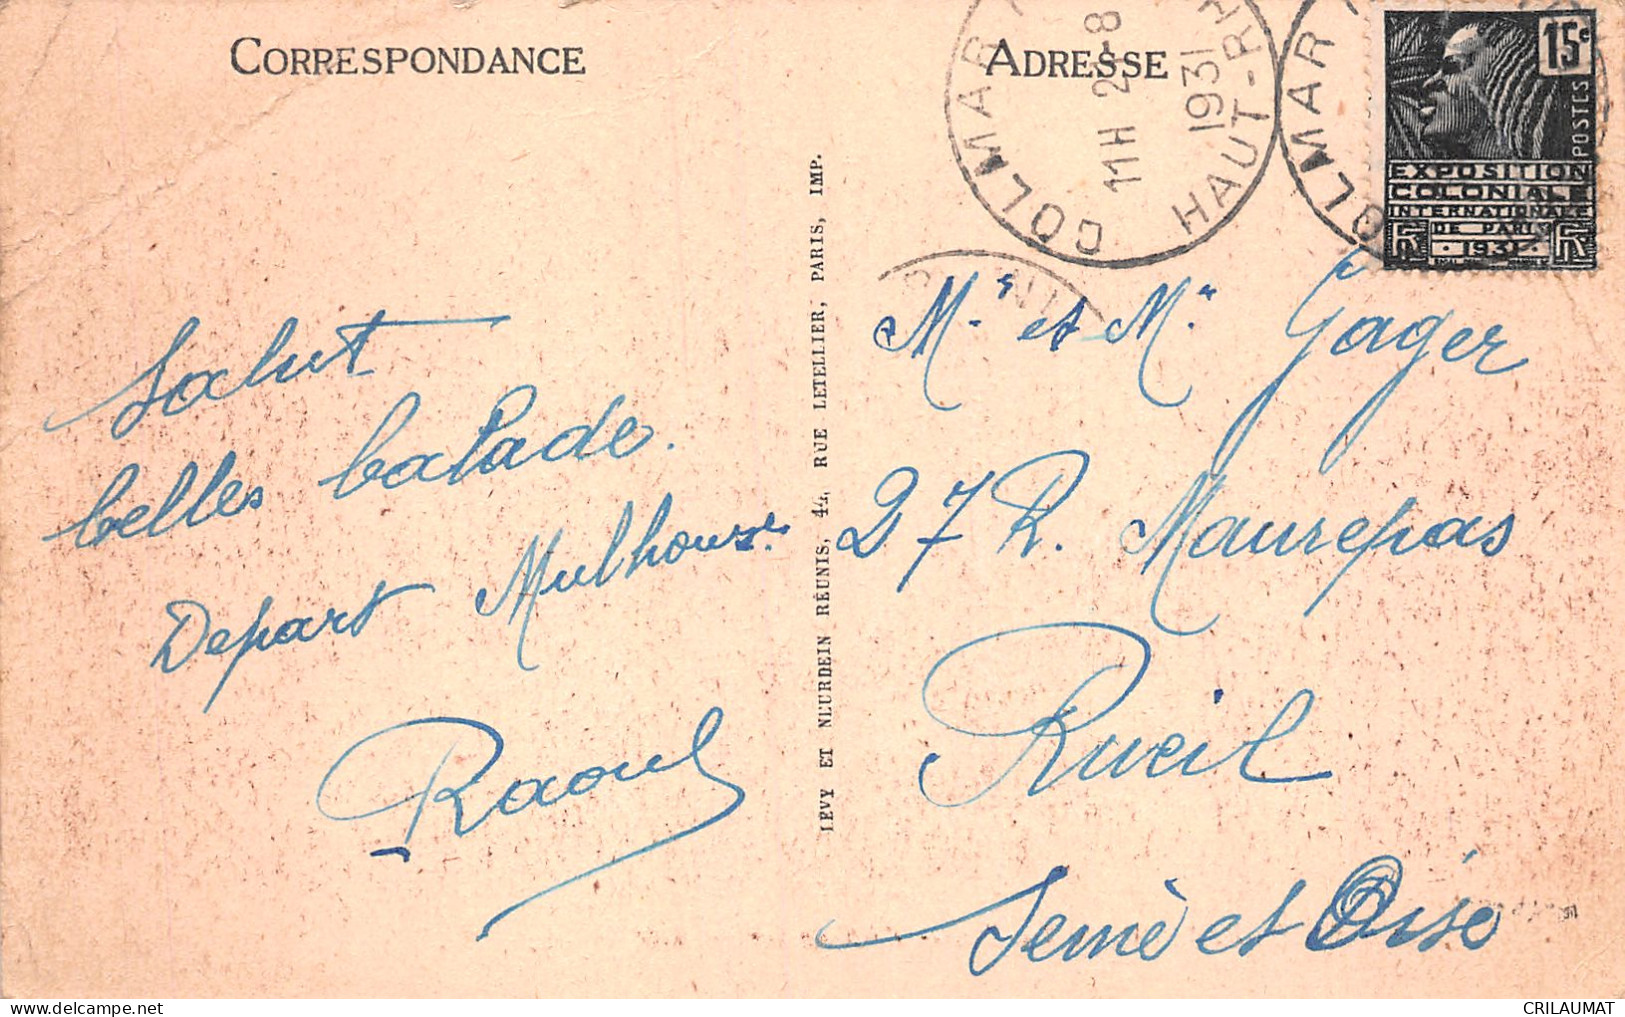 CORRESPONDANCE
Salut
belles balade.
Depart Mulhouse
Raoul
LEVY ET NEURDEIN RÉUNIS, 44, RUE LETELLIER, PARIS, IMP.
ADRESSE
COLMAR
11H 2-8
1931
HAUT-RH
COLMAR
15c
POSTES
EXPOSITION
COLONIALE
INTERNATIONALE
DE PARIS
1931
Mr et Me Gager
27 R. Maurepas
Rueil
Seine et Oise
CRILAUMAT